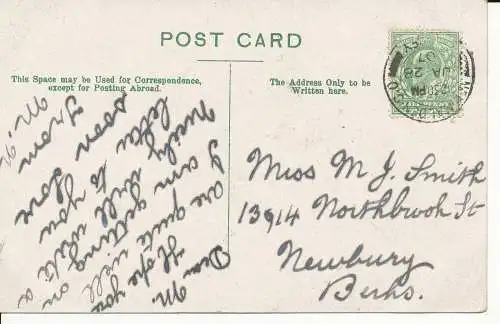 POST CARD
This Space may be Used for Correspondence, except for Posting Abroad.
The Address Only to be
Written here.
Dear M.
Hope you
are quite well
I am getting on
nicely will write a
letter to you
soon love
From
M. M.
Miss M J. Smith
13914 Northbrook St
Newbury
Berks.
JA 28